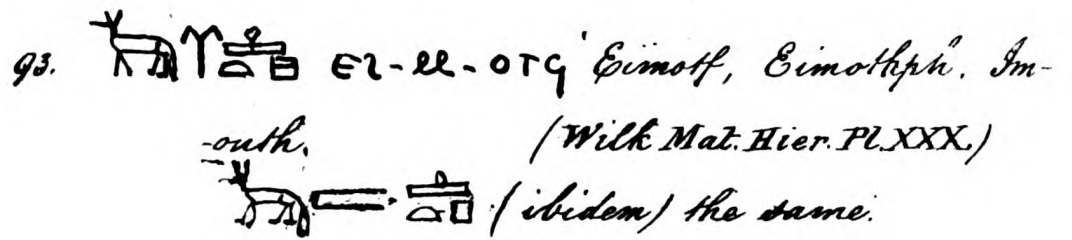 93. ⲉⲓ-ⲙ-ⲟⲧϥ Eimotf, Eimothph. Im-
-outh. (Wilk Mat. Hier. Pl. XXX.)
(ibidem) the same.